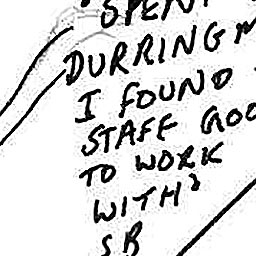 SPENT
DURRING M
I FOUND
STAFF GOO
TO WORK
WITH
SB